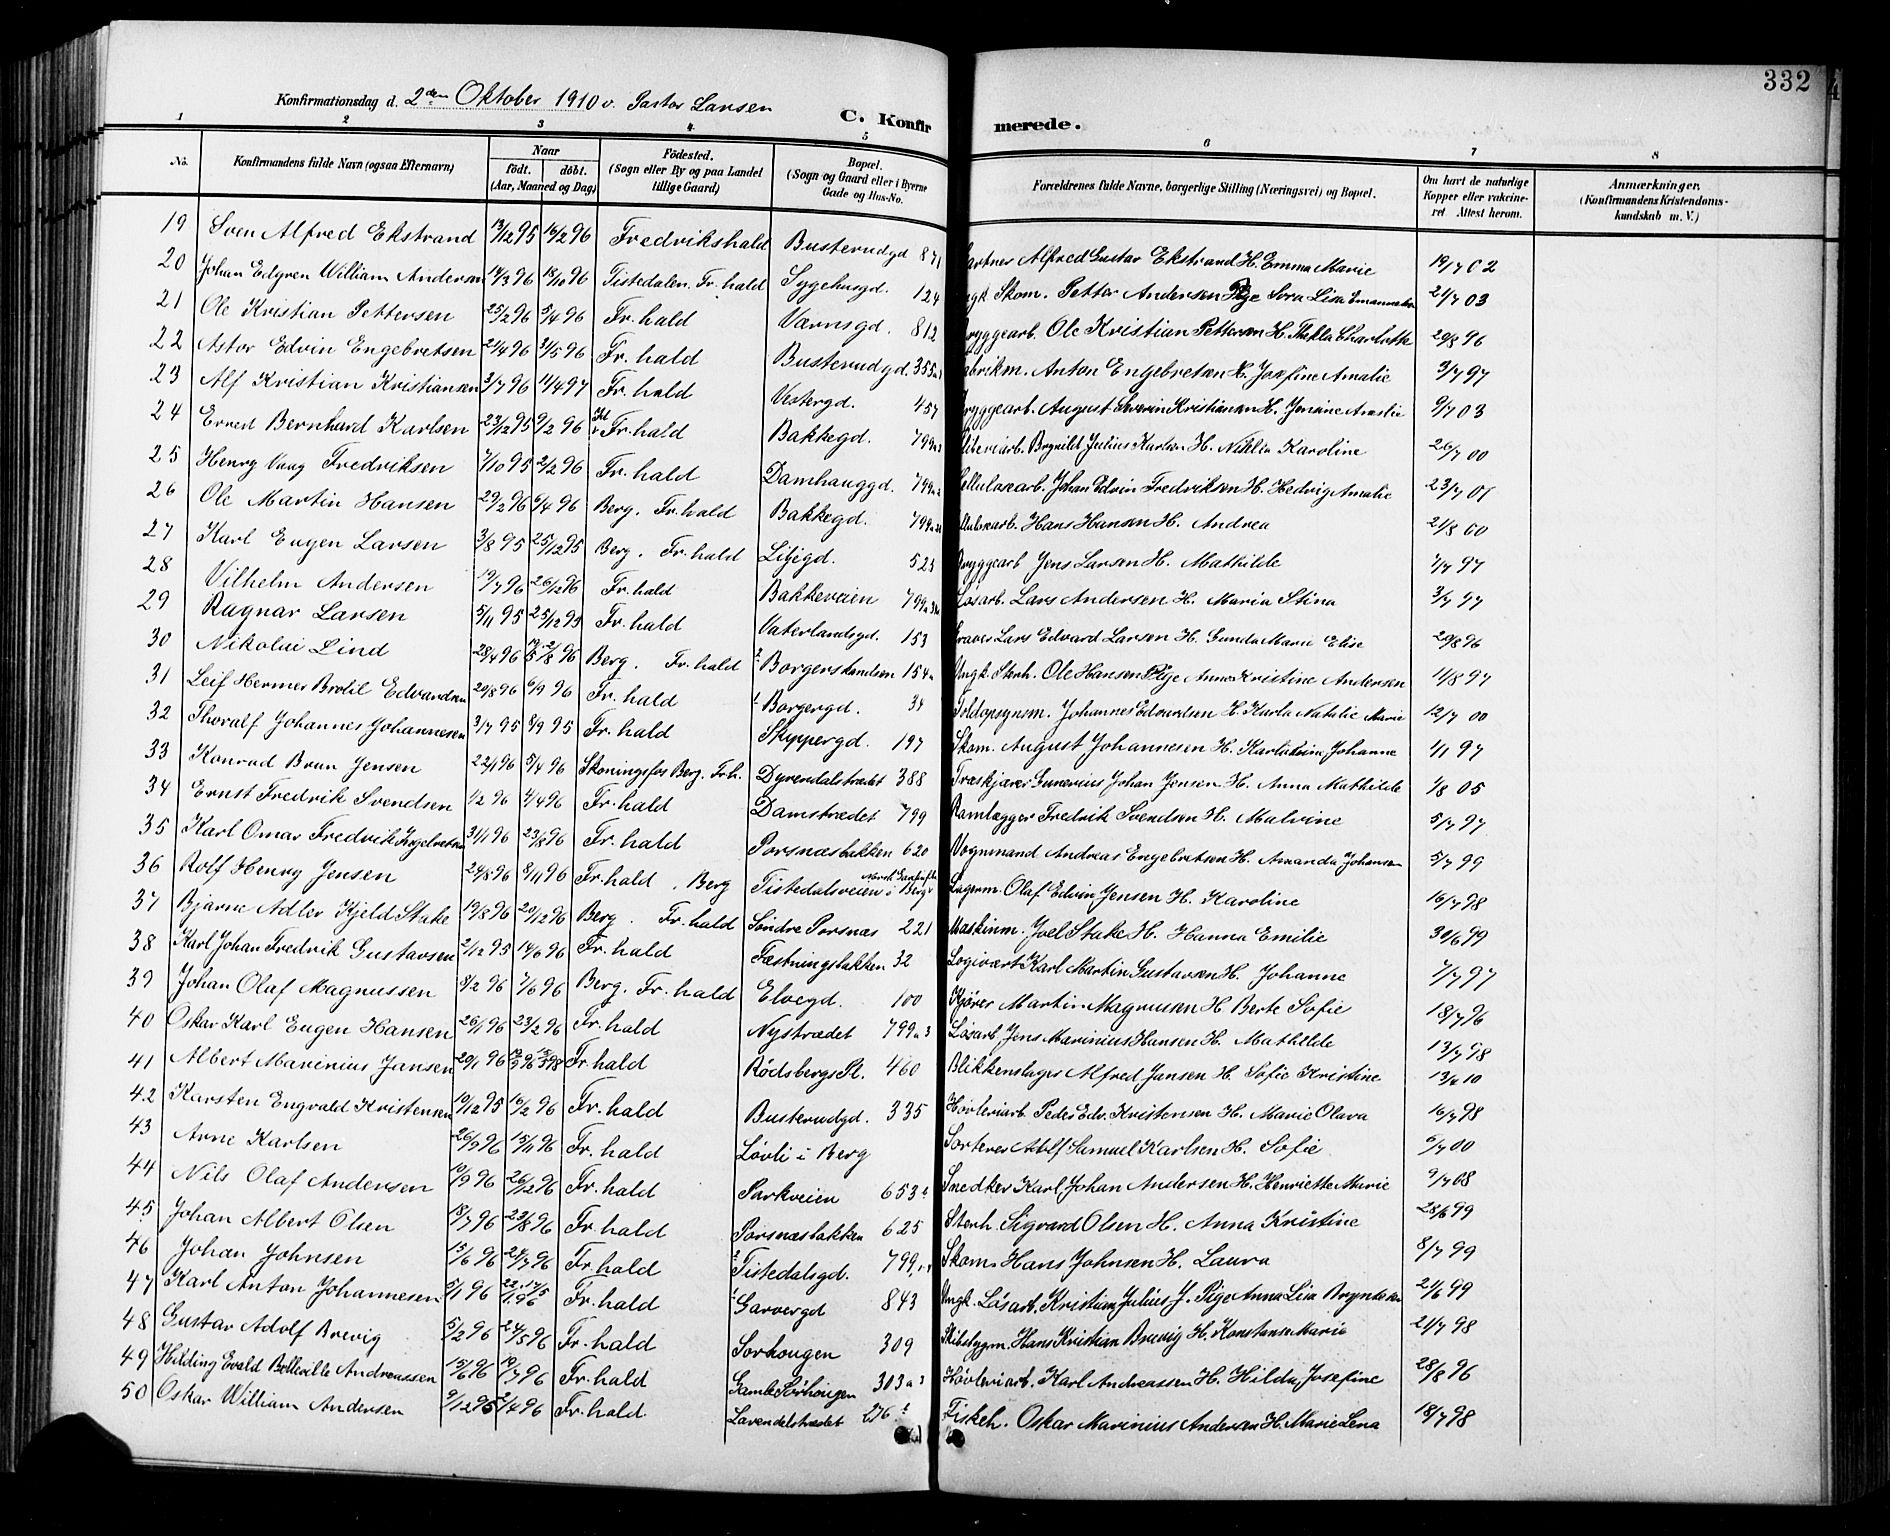 332
Konfirmationsdag d. 2den Oktober 1910 v. Pastor Larsen
C. Konfirmerede.
1 2 3 4 5 6 7 8
No. Konfirmandens fulde Navn (ogsaa Efternavn) Naar födt. döbt. (Aar, Maaned og Dag) Födested. (Sogn eller By og paa Landet tillige Gaard) Bopæl. (Sogn og Gaard eller i Byerne Gade og Hus-No. Forældrenes fulde Navne, borgerlige Stilling (Næringsvei) og Bopæl. Om havt de naturlige Kopper eller vakcineret Attest herom. Anmærkninger. (Konfirmandens Kristendomskundskab m. V.)
19 Sven Alfred Ekstrand 13/12 95 16/2 96 Fredrikshald Busterudgd 871 Alfred Gustav Ekstrand H. Emma Marie 19/7 02
20 Johan Edgren William Andersen 14/3 96 18/10 96 Tistedalen. Fr.hald Sygehusgd. 124 Ungk. Skom. Petter Andersen Pige Sara Lisa 21/7 03
21 Ole Kristian Pettersen 25/2 96 5/4 96 Fr.hald Værnsgd. 812 Bryggearb. Ole Kristian Pettersen H. Thekla Charlotte 20/8 96
22 Astor Edvin Engebretsen 21/4 96 31/5 96 Fr.hald Busterudgd. 355 Fabrikm. Anton Engebretsen H. Josefine Amalie 3/7 97
23 Alf Kristian Kristiansen 3/7 96 11/4 97 Fr.hald Vestergd. 457 Bryggearb. August Severin Kristiansen H. Jenine Amalie 9/7 03
24 Ernst Bernhard Karlsen 23/12 95 9/2 96 Fr.hald Bakkegd. 799 Julius Karlsen H. Karoline 26/7 00
25 Henry Vaag Fredriksen 7/10 95 2/2 96 Fr.hald Damhauggd. 799 Cellulosearb. Johan Edvin Fredriksen H. Hedvig Amalie 23/7 01
26 Ole Martin Hansen 29/2 96 6/4 96 Berg. Fr.hald Bakkegd. 799 Hans Hansen H. Andrea 21/8 60
27 Karl Eugen Larsen 3/8 95 25/12 95 Berg. Fr.hald Liljegd. 523 Bryggearb Jens Larsen H. Mathilde 1/7 97
28 Vilhelm Andersen 19/7 96 26/12 96 Fr.hald Bakkeveien 799 Løsarb. Lars Andersen H. Maria Stina 3/7 97
29 Ragnar Larsen 5/11 95 25/12 95 Fr.hald Vaterlandsgd. 153 Graver Lars Edvard Larsen H. Gunda Marie Elise 20/8 96
30 Nikolai Lind 28/4 96 Berg. Fr.hald Borgerskandsen 154 Ungk. Sterh. Ole Hansen Pige Anna Kristine Andersen 11/8 97
31 Leif Hermes Brotil Edvardsen 20/8 96 6/9 96 Fr.hald Borgergd. 34 Toldopsynsm. Johannes Edvardsen H. Karla Natalie Marie 12/7 00
32 Thoralf Johannes Johannesen 3/7 95 8/9 95 Fr.hald Skippergd. 197 Skom. August Johannesen H. Johanne 1/1 97
33 Konrad Brun Jensen 22/1 96 5/4 96 Skoningsfos Berg. Fr.h. Dyrendalstrædet 388 Træskjærer Gunerius Johan Jensen H. Anna Mathilde 1/8 05
34 Ernst Fredrik Svendsen 1/2 96 4/4 96 Fr.hald Damstrædet 799 Ramlægger Fredrik Svendsen H. Malvine 5/7 97
35 Karl Omar Fredrik Engebretsen 31/1 96 23/8 96 Fr.hald Porsnæsbakken 620 Vognmand Andreas Engebretsen H. Amanda Johansen 5/7 99
36 Rolf Henry Jensen 24/8 96 8/11 96 Fr.hald, Berg Tistedalsveien i Berg Lagerm. Olaf Edvin Jensen H. Karoline 16/7 98
37 Bjarne Adler Kjeld Stake 19/8 96 20/12 96 Berg. Fr.hald Söndre Porsnæs 221 Maskinm. Joel Stake H. Hanna Emilie 30/6 99
38 Karl Johan Fredrik Gustavsen 2/12 95 14/6 96 Fr.hald Fæstningsbakken 32 Logivært Karl Martin Gustavsen H. Johanne 7/7 97
39 Johan Olaf Magnussen 8/2 96 7/6 96 Berg. Fr.hald Elvegd. 100 Kjører Martin Magnusen H Berte Sofie 18/7 96
40 Oskar Karl Eugen Hansen 26/1 96 23/2 96 Fr.hald Nystrædet 799 a 3 Løsarb Jens Marinius Hansen H. Mathilde 13/7 98
41 Albert Marinius Jansen 20/1 96 Fr.hald Rödsbergs Pl. 460 Blikkenslager Alfred Jansen H. Sofie Kristine 13/6 10
42 Karsten Engvald Kristensen 19/12 95 16/2 96 Fr.hald Busterudgd. 335 Høvleriarb. Peder Edv. Kristensen H. Marie Olava 16/7 98
43 Arne Karlsen 26/9 96 15/11 96 Fr.hald Løvli i Berg Sorterer Adolf Samuel Karlsen H. Sofie 5/7 00
44 Nils Olaf Andersen 19/9 96 26/12 96 Fr.hald Parkveien 653 Snedker Karl Johan Andersen H. Henriette Marie 9/7 08
45 Johan Albert Olsen 18/7 96 23/8 96 Fr.hald Porsnæsbakken 625 Sterh. Sigvard Olsen H. Anna Kristine 28/6 99
46 Johan Johnsen 15/6 96 24/7 96 Fr.hald Tistedalsgd. 799 Skom. Hans Johnsen H. Laura 8/7 99
47 Karl Anton Johannesen 5/1 96 Fr.hald Garvergd 843 Ungk. Løsarb. Kristian Julius J. Pige Anna Lisa 21/6 99
48 Gustav Adolf Brevig 5/2 96 24/5 96 Fr.hald Sorhougen 309 Skibsbygm. Hans Kristian Brevig H. Konstanse Marie 21/7 98
49 Hilding Evald Andreassen 15/6 96 19/7 96 Fr.hald Gamle Sørhougen 303 a Høvleriarb. Karl Andreassen H. Hilda Josefine 28/8 96
50 Oskar William Andersen 9/12 95 2/4 96 Fr.hald Lavendelstrædet 276 Fiskeh. Oskar Marinius Andersen H. Marie Lena 18/7 98